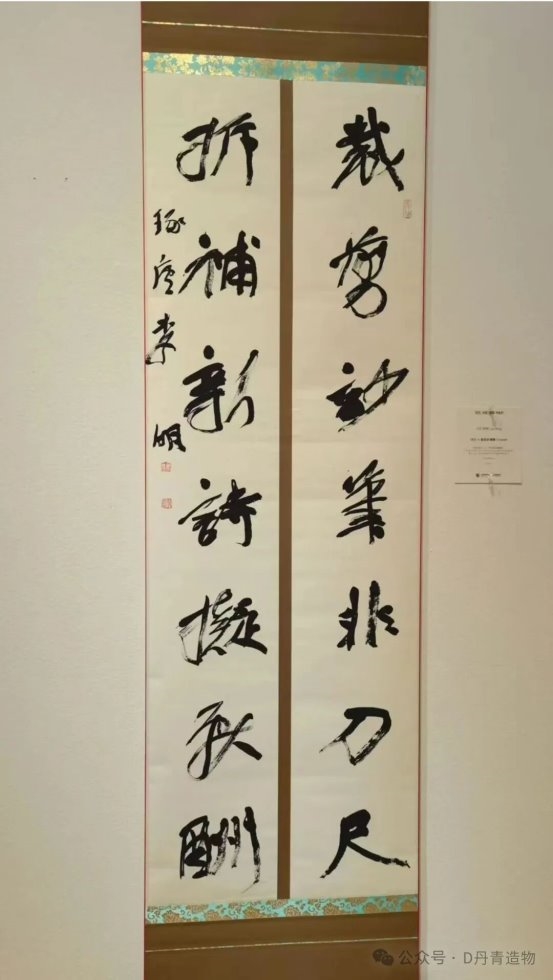 裁剪妙筆非刀尺
拆補新詩擬献酬
李明
公众号·D丹青造物